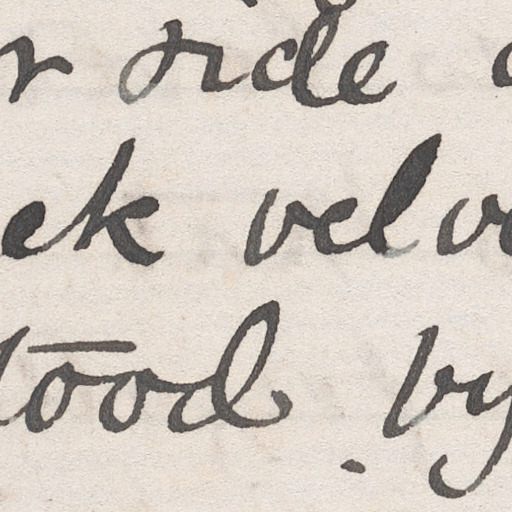 r side
ck velv
tood by